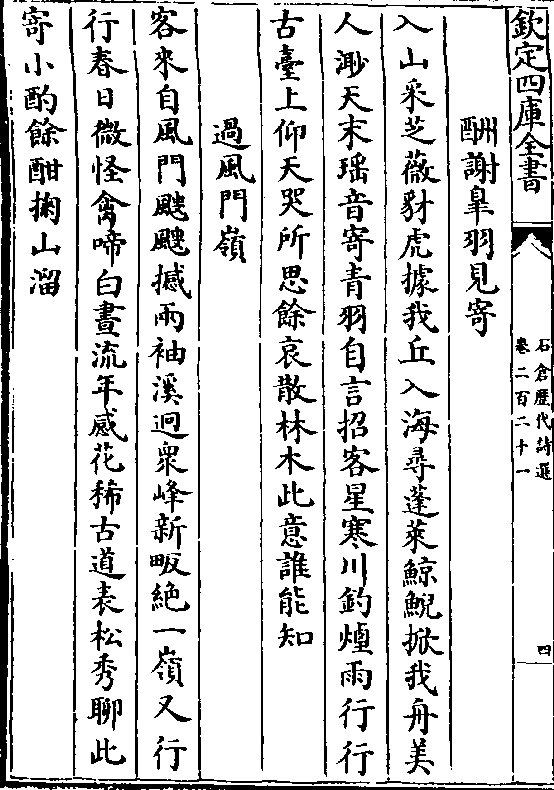 欽定四庫全書
石倉歷代詩選
卷二百二十一
四
酬謝臯羽見寄
入山采芝薇豺虎據我丘入海尋蓬萊鯨鯢掀我舟美
人渺天末瑤音寄青羽自言招客星寒川釣煙雨行行
古臺上仰天哭所思餘哀散林木此意誰能知
過風門嶺
客來自風門颼颼撼兩袖溪迴衆峰新畈絶一嶺又行
行春日微怪禽啼白晝流年感花稀古道表松秀聊此
寄小酌餘酣掬山溜